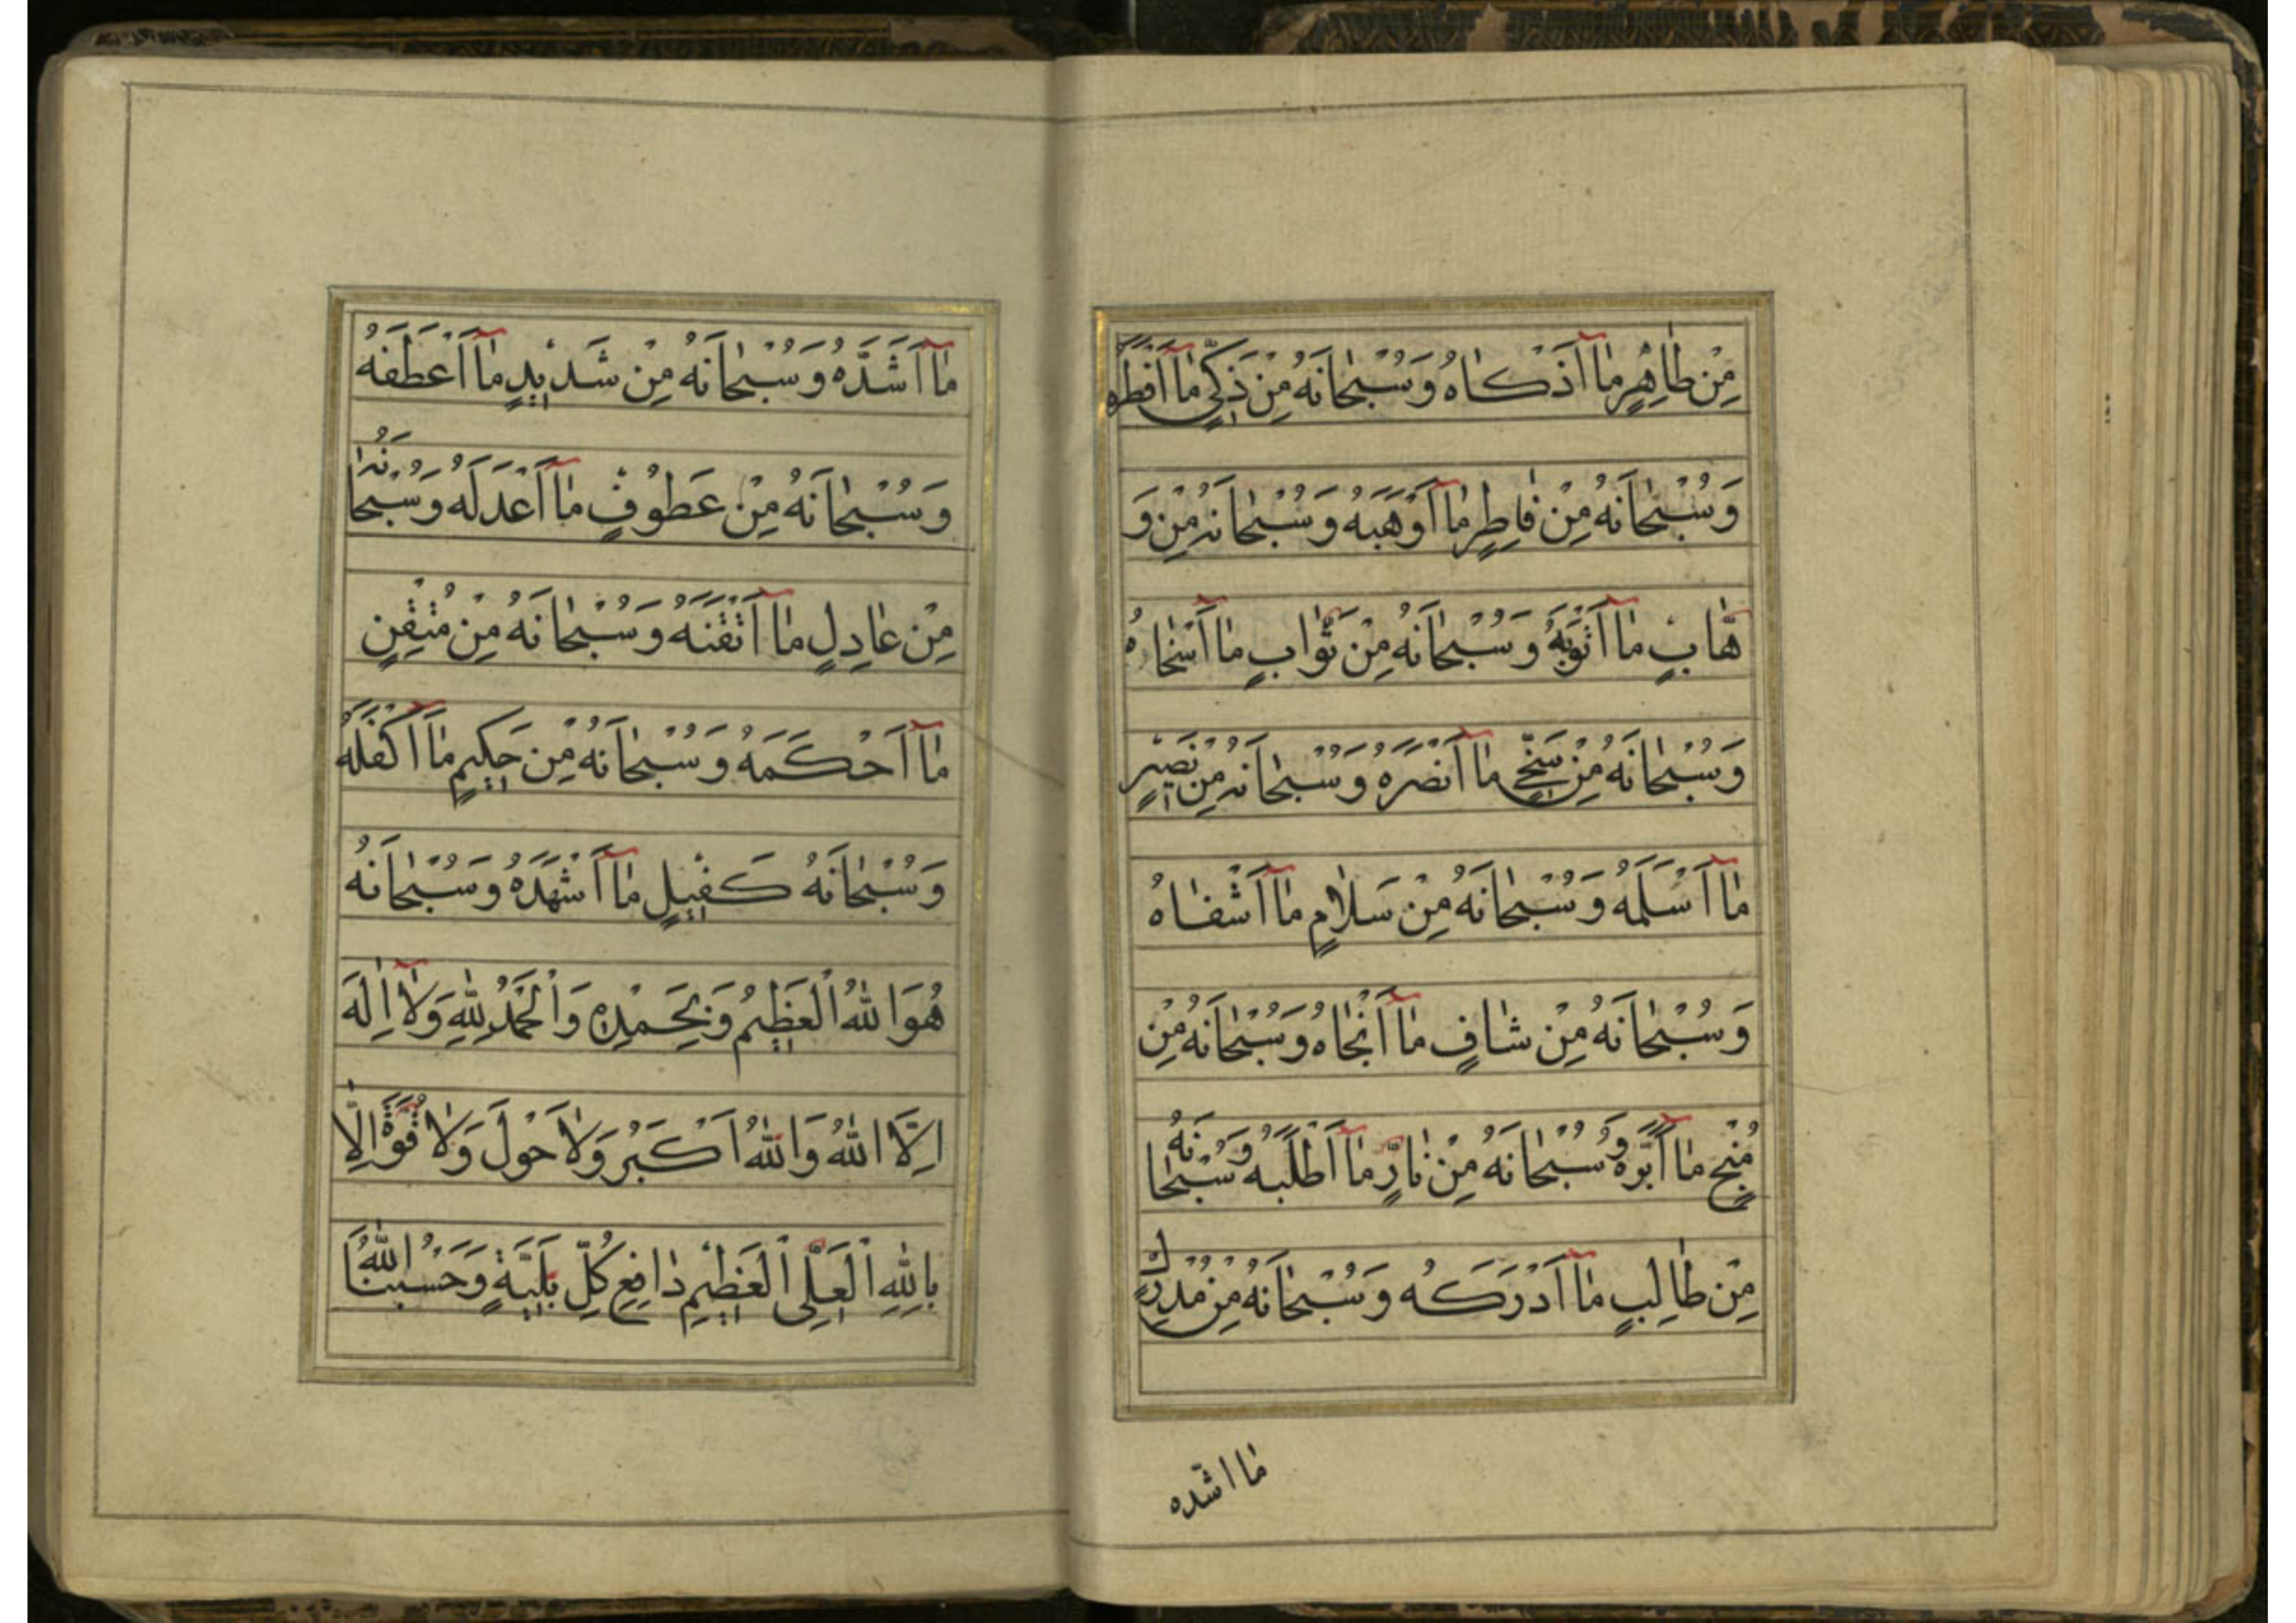 مِنْ طَاهِرٍ مَا آ اَذْكَاهُ وَسُبْحَانَهُ مِنْ ذَكِيٍّ مَا آ اَفْطَرَهُ
وَسُبْحَانَهُ مِنْ فَاطِرٍ مَا آ اَوْهَبَهُ وَسُبْحَانَهُ مِنْ وَ
هَّابٍ مَا آ اَثْوَبَهُ وَسُبْحَانَهُ مِنْ ثَوَّابٍ مَا آ اَسْخَاهُ
وَسُبْحَانَهُ مِنْ سَخِيٍّ مَا آ اَنْصَرَهُ وَسُبْحَانَهُ مِنْ نَصِيْرٍ
مَا آ اَسْلَمَهُ وَسُبْحَانَهُ مِنْ سَلَامٍ مَا آ اَشْفَاهُ
وَسُبْحَانَهُ مِنْ شَافٍ مَا آ اَنْجَاهُ وَسُبْحَانَهُ مِنْ
مُنْجٍ مَا آ اَبَرَّهُ وَسُبْحَانَهُ مِنْ بَارٍّ مَا آ اَطْلَبَهُ وَسُبْحَانَهُ
مِنْ طَالِبٍ مَا آ اَدْرَكَهُ وَسُبْحَانَهُ مِنْ مُدْرِكٍ
ما اشدّه
مَا آ اَشَدَّهُ وَسُبْحَانَهُ مِنْ شَدِيْدٍ مَا آ اَعْطَفَهُ
وَسُبْحَانَهُ مِنْ عَطُوْفٍ مَا آ اَعْدَلَهُ وَسُبْحَانَهُ
مِنْ عَادِلٍ مَا آ اَتْقَنَهُ وَسُبْحَانَهُ مِنْ مُتْقِنٍ
مَا آ اَحْكَمَهُ وَسُبْحَانَهُ مِنْ حَكِيمٍ مَا آ اَكْفَلَهُ
وَسُبْحَانَهُ كَفِيْلٍ مَا آ اَشْهَدَهُ وَسُبْحَانَهُ
هُوَ اللهُ الْعَظِيْمُ وَبِحَمْدِهِ وَالْحَمْدُ لِلهِ وَلَا اِلٰهَ
اِلَّا اللهُ وَاللهُ اَكْبَرُ وَلَا حَوْلَ وَلَا قُوَّةَ اِلَّا
بِاللهِ الْعَلِيِّ الْعَظِيْمِ دَافِعِ كُلِّ بَلِيَّةٍ وَحَسْبُنَا اللهُ